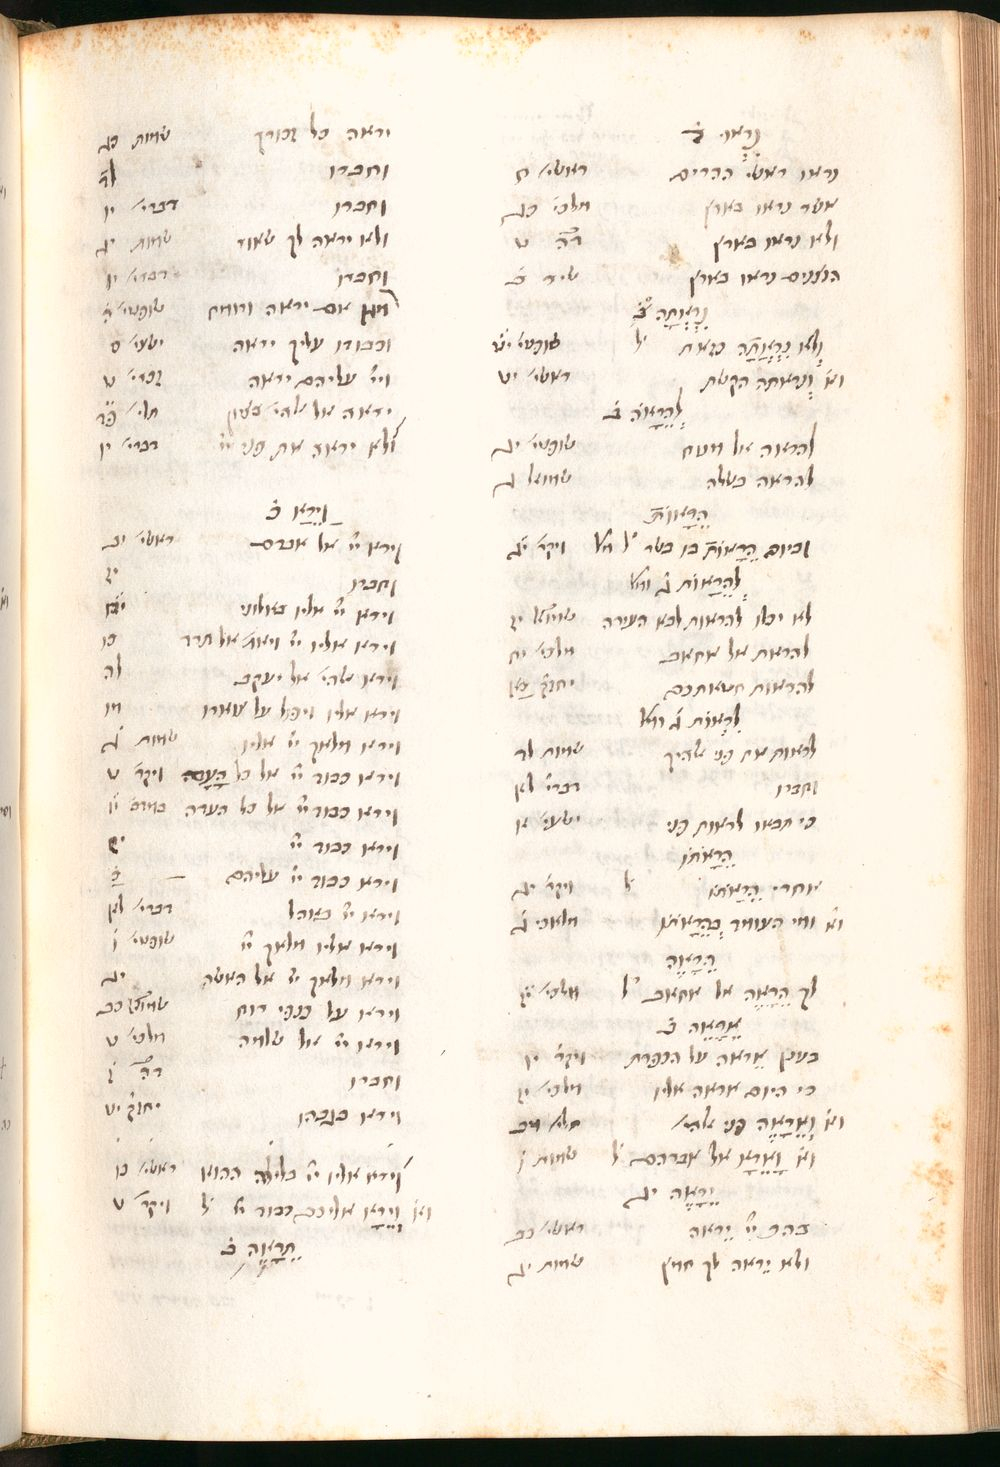 נִרְאוּ ב̇
נראו ראשי ההרים ראשי׳ ח
אשר נראו בארץ
ולא נראו בארץ ד״ה ט
הנצנים נראו בארץ שיר ב̇
נִרְאֲתָה ב̇
וְלֹא נִרְאֲתָה כזאת ל׳ שופטי׳ יט
וא׳ וְנראתה הקשת ראשי׳ ט
לְהֵרָאֹה ב̇
להראה אל שופטי׳ יג
להראה בשלה שמואל ג
הֵרָאוֹת
וביום הֵרָאוֹת בו בשר ל׳ ויקר׳ יג
לְהֵרָאוֹת ג̇
לא יכלו להראות לבא העירה שמואל יז
להראות אל אחאב מלכי׳ יח
להראות חטאתכם יחזק׳ כא
לֵרָאוֹת ג̇
לראות את פני אלהיך שמות לד
וחברו דברי׳ לא
כי תבאו לראות פני ישעי׳ א
הֵרָאֹתוֹ
אחרי הֵרָאֹתוֹ ל׳ ויקר׳ יג
וא׳ ומי העומד בְּהֵרָאֹתוֹ מלאכי ג̇
הֵרָאֵה
לך הֵרָאֵה אל אחאב ל׳ מלכי׳ יח
אֵרָאֶה ב̇
בענן אֵראה על הכפרת ויקר׳ יו
כי היום אראה אליו מלכי׳ יח
וא׳ וְאֵרָאֶה פני אלהי׳ תלי׳ מב
וא׳ וָאֵרָא אל אברהם ל׳ שמות ו̇
יֵרָאֶה יג
בהר י״י יֵראה ראשי׳ כב
ולא יֵראה לך חמץ שמות יג
יראה כל זכורך שמות כג
וחברו לד
וחברו דברי׳ יו
ולא יראה לך שאור שמות יג
וחברו דברי׳ יו
אם יראה ורומח שופטי׳ ה
וכבודו עליך יראה ישעי׳ ס
וי״י עליהם יראה זכרי׳ ט
יראה אל אלהי׳ בציון תלי׳ פד
ולא יראה את פני י״י דברי׳ יו
וַיֵּרָא כ̇
וירא י״י אל אברם ראשי׳ יב
וחברו יז
וירא י״י אליו באלוני יח
וירא אליו י״י ויאמ׳ אל תרד כו
וירא אלהי׳ אל יעקב לה
וירא אליו ויפל על צוארו מו
וירא מלאך י״י אליו שמות ג̇
וירא כבוד י״י אל כל הָעָם ויקר׳ ט
וירא כבוד י״י אל כל העדה במדב׳ יו
וירא כבוד י״י יז
וירא כבוד י״י עליהם כ̇
וירא י״י באהל דברי׳ לא
וירא אליו מלאך י״י שופטי׳ ו̇
וירא מלאך י״י אל האשה יג
וירא על כנפי רוח שמואל כב
וירא י״י אל שלמה מלכי׳ ט
וחברו ד״ה ז̇
וירא בגבהו יחזק׳ יט
וירא אליו י״י בלילה ההוא ראשי׳ כו
וא׳ וְיֵרָא אליכם כבוד י״י ל׳ ויקר׳ ט
תֵּרָאֶה ב̇